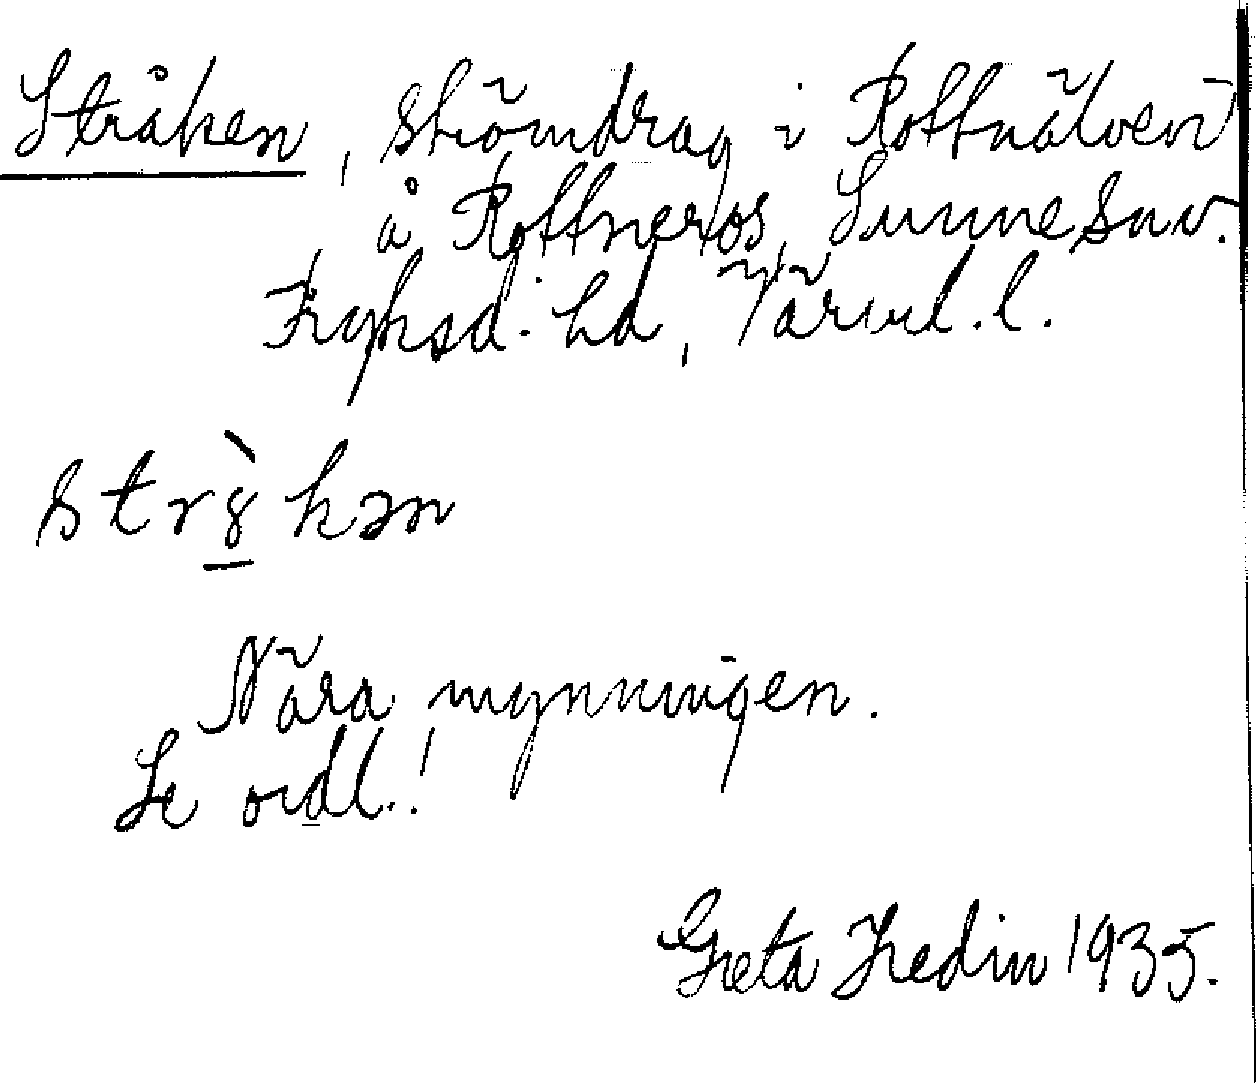 Stråken, strömdrag i Rottnälven
å Rottneros, Sunne snv.
Fryksd. hd, Värml. l.
strꝸ̀kən
Nära mynningen.
Se ordl.!
Greta Hedin 1935.